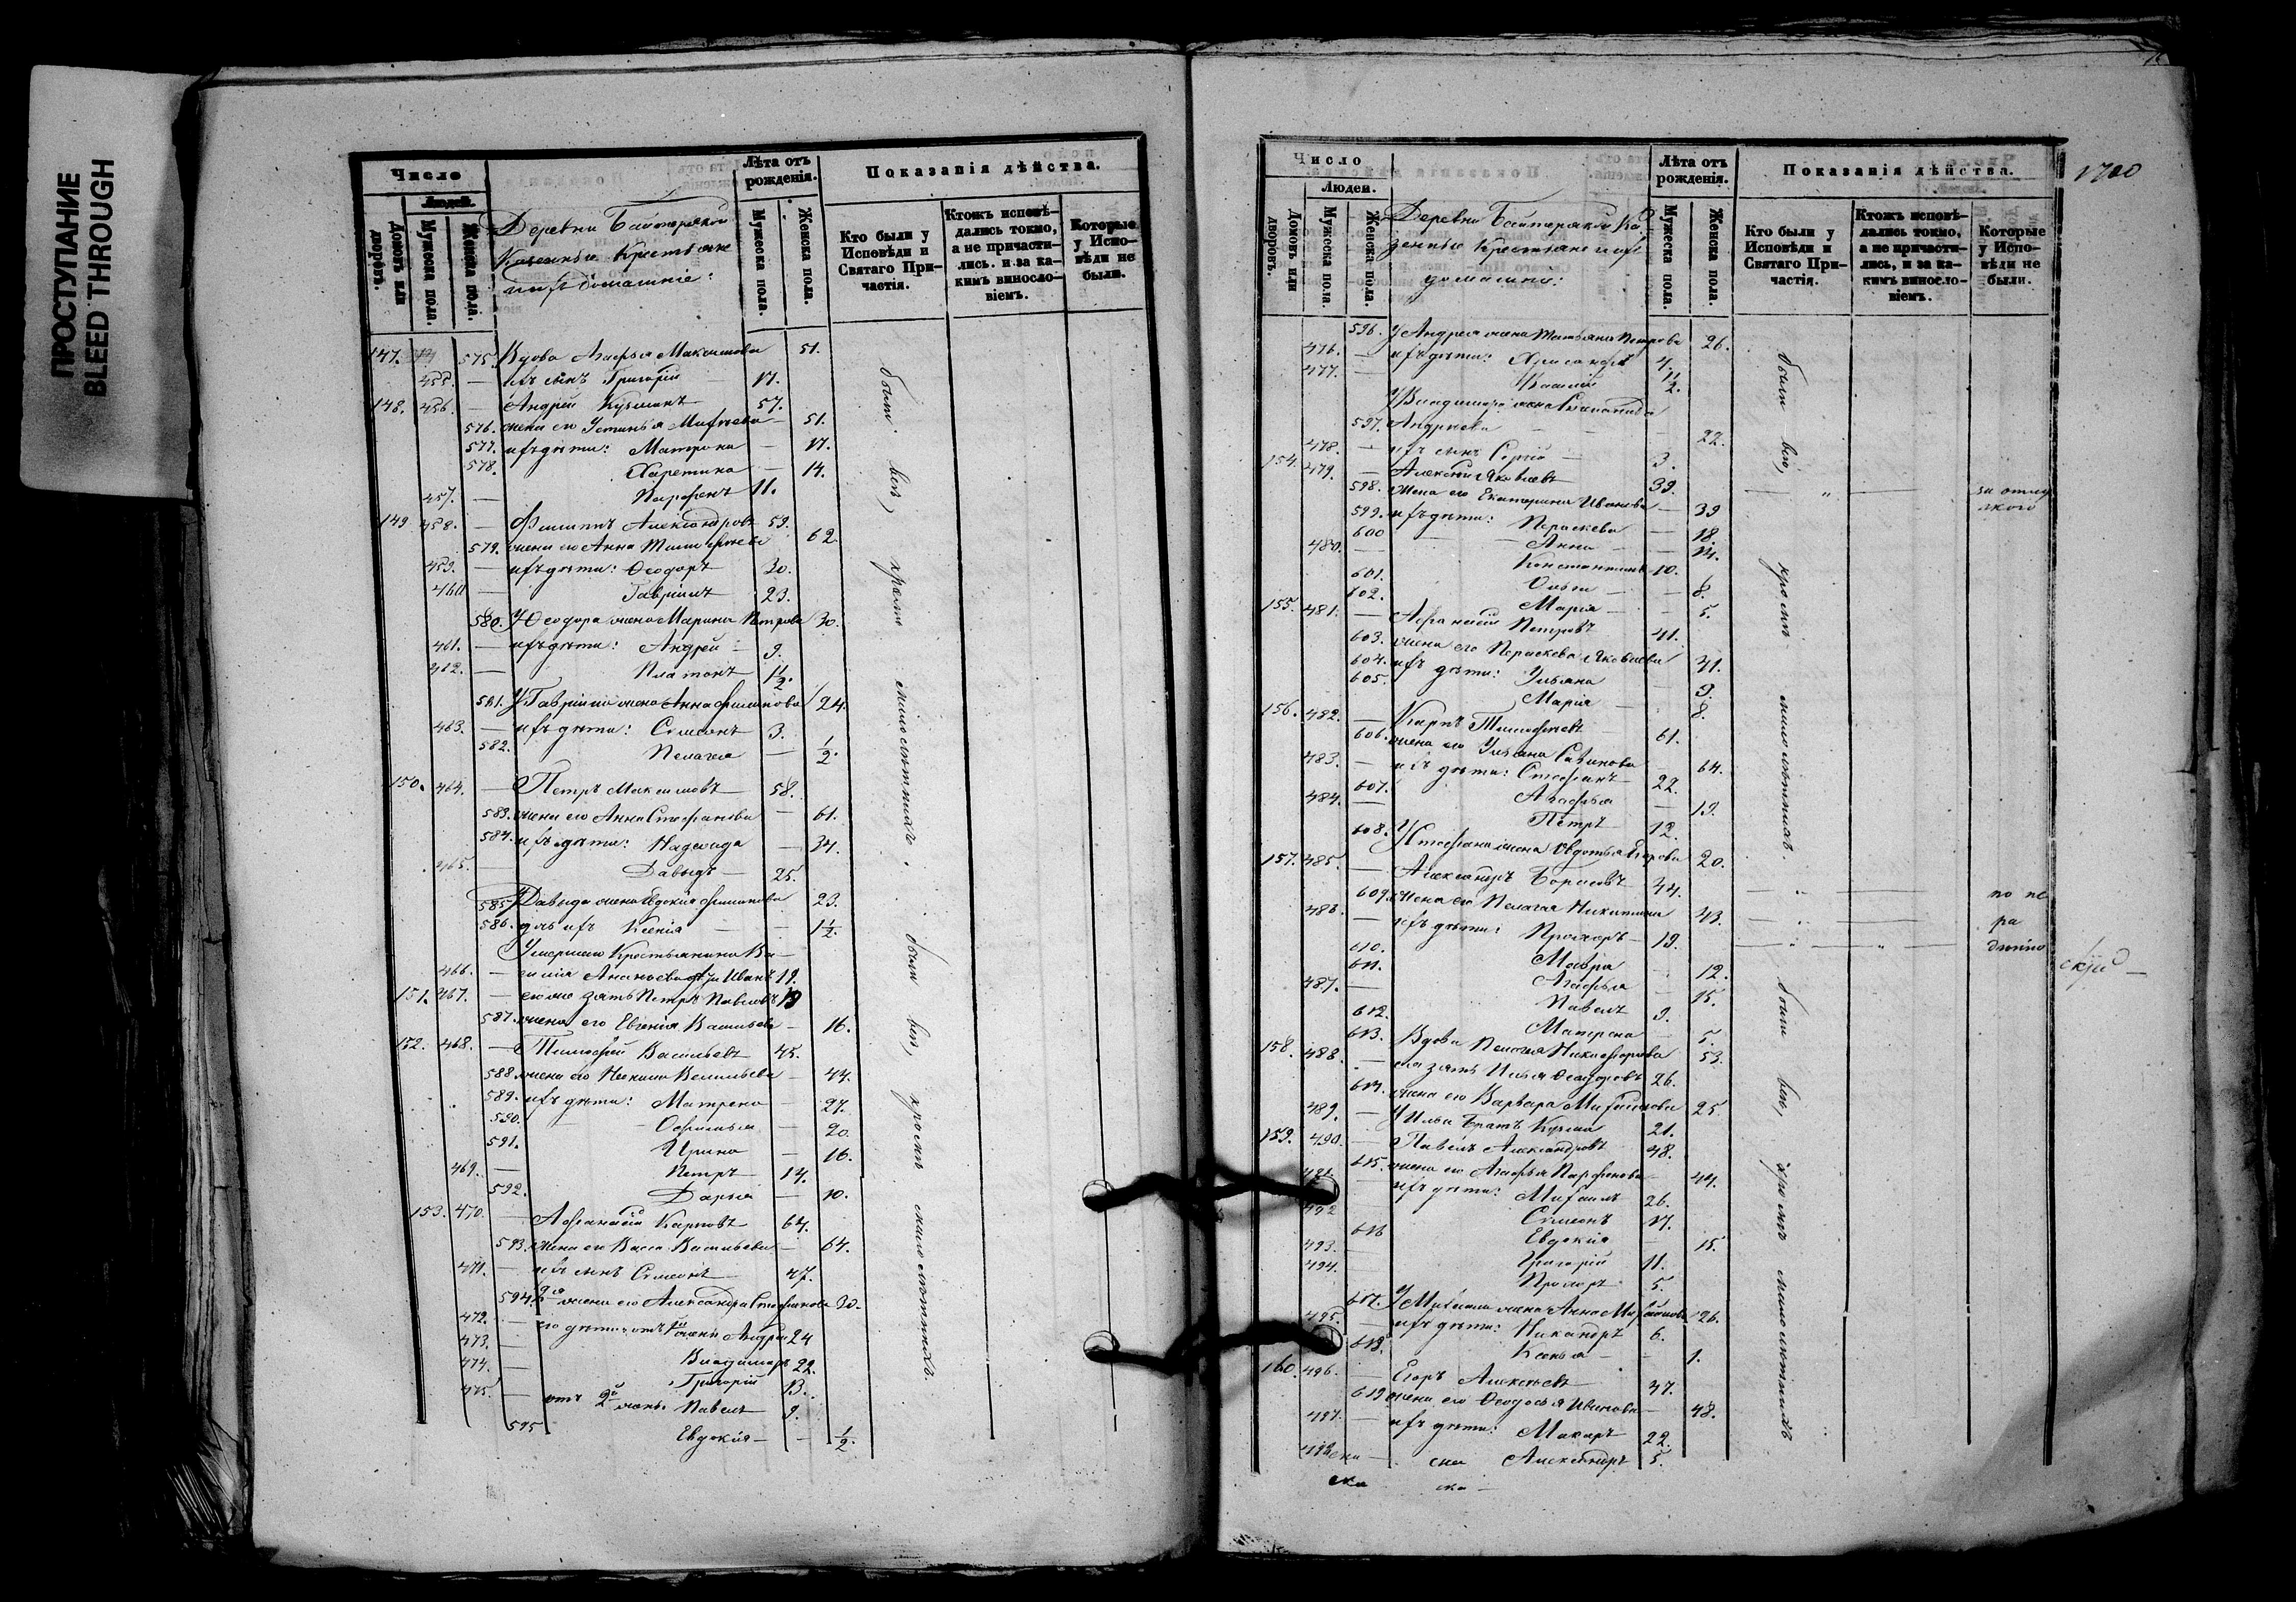 ПРОСТУПАНИЕ
BLEED THROUGH
Число
Людей.
Домовъ или дворовъ.
Мужеска пола.
Женска пола.
Деревни Байтеряков
Казенные Крестьяне
и ихъ домашніе:
Лѣта отъ рожденія.
Мужеска пола.
Женска пола.
Показанія дѣйства.
Кто были у Исповѣди и Святаго Причастія.
Ктожъ исповѣдались токмо, а не причастились. и за какимъ винословіемъ.
Которые у Исповѣди не были.
147. 575. Вдова Агафья Максимова 51.
455. — ихъ сынъ Григорій — 17.
148. 456. — Андрей Кузминъ 57.
576. жена его Устинья Матвеева — 51.
577. ихъ дѣти: Матрона — 17.
578. Харетина — 14.
457. — Парфенъ 11.
149 458. — Филиппъ Александровъ 59.
579. жена его Анна Тимофеева 62
459. — ихъ дѣти: Ѳеодоръ 30.
460 — Гавріилъ 23.
580. У Ѳеодора жена Марина Петрова 30.
461. — ихъ дѣти: Андрей — 9.
462. — Платонъ 1 1/2.
581. У Гавріила жена Анна Филипова 24.
463. — ихъ дѣти: Симеонъ 3.
582. Пелагея — 1/2.
150. 464. — Петръ Максимовъ 58.
583. жена его Анна Стефанова — 61.
584. ихъ дѣти: Надежда — 34.
465. — Давыдъ — 25.
585. У Давыда жена Евдокия Филипова 23.
586. дочь ихъ Ксенія — 1 1/2.
Умершаго Крестьянина Ва-
466. — силія Ананьева Иванъ 19.
151. 467. — его же зять Петръ Павловъ 19
587. жена его Евгенія Васильева — 16.
152. 468. — Тимофей Васильевъ 45.
588. жена его Васильева — 44.
589. ихъ дѣти: Матрена — 27.
590. Офимья — 20.
591. Ирина — 16.
469. — Петръ — 14.
592. Дарья — 10.
153. 470. — Афанасій Карповъ — 64.
593. жена его Васса Васильева — 64.
471. — ихъ сынъ Симеонъ — 47.
594. 2я жена его Александра Стефанова 30.
472. — его дѣти отъ 1й жены Андрей 24
473. — Владимиръ 22.
474. — Григорій 13.
475. — отъ 2й жены Павелъ 9.
595 Евдокия — — 1/2.
были всѣ, кромѣ малолѣтнихъ.
были всѣ, кромѣ малолѣтнихъ.
1700
Число
Людей.
Домовъ или дворовъ.
Мужеска пола.
Женска пола.
Деревни Байтеряков Ка-
зенные Крестьяне и ихъ
домашние:
Лѣта отъ рожденія.
Мужеска пола.
Женска пола.
Показанія дѣйства.
Кто были у Исповѣди и Святаго Причастія.
Ктожъ исповѣдались токмо, а не причастились, и за какимъ винословіемъ.
Которые у Исповѣди не были.
596. У Андрея жена Татьяна Петрова 26.
476. — ихъ дѣти: 4.
477. — Василій 1 1/2.
У Владимира жена
597. Андреева — — 22.
478. — ихъ сынъ Сергій — 3.
154. 479. — Алексей Яковлевъ 39. — „ — за отлу
598. жена его Екатерина Иванова — 39
599. ихъ дѣти: Параскева — 18.
600 Анна — 14.
480. — Константинъ 10.
601. Ольга — — 8.
602. Марія — — 5.
155. 481. — Афанасій Петровъ 41.
603. жена его Параскева Яковлева 41.
604. ихъ дѣти: Ульяна — 9.
605. Марія — 8.
156. 482. — Карпъ Тимофеевъ 61.
606. жена его Ульяна Савинова — 64.
483. — ихъ дѣти: Стефанъ — 22.
607. Агафья — 19.
484. — Петръ 12.
608. У Стефана жена Авдотья Егорова 20.
157. 485. — Александръ Борисовъ 44. — „ — по не
609. жена его Пелагея Никитина 43. — „ — ра
486. — ихъ дѣти: Прохоръ — 19. — „ — дѣнію
610. Мавра — 12.
611. Агафья — 15.
487. — Павелъ 9.
612. Матрена — 5.
158. 613. Вдова Пелагея Никифорова 53.
488. — ея зять Илья Ѳеодоровъ 26.
614. жена его Варвара 25.
489. — У Ильи братъ Кузма 21.
159. 490. — Павелъ Александровъ 48.
615. жена его Агафья Парфенова — 44.
491. — ихъ дѣти: Михаилъ 26.
492 — Симеонъ 17.
616 Евдокия — 15.
493. — Григорій 11.
494. — Прохоръ 5.
617. У Михаила жена Анна 26.
495. — ихъ дѣти: Никандръ 6.
618. Ксенья — — 1.
160. 496. — Егоръ Алексеевъ 47.
619 жена его Ѳеодосья Иванова — 48.
497. — ихъ дѣти: Макаръ 22.
498 — Александръ 5.
были всѣ, кромѣ малолѣтнихъ.
были всѣ, кромѣ малолѣтнихъ